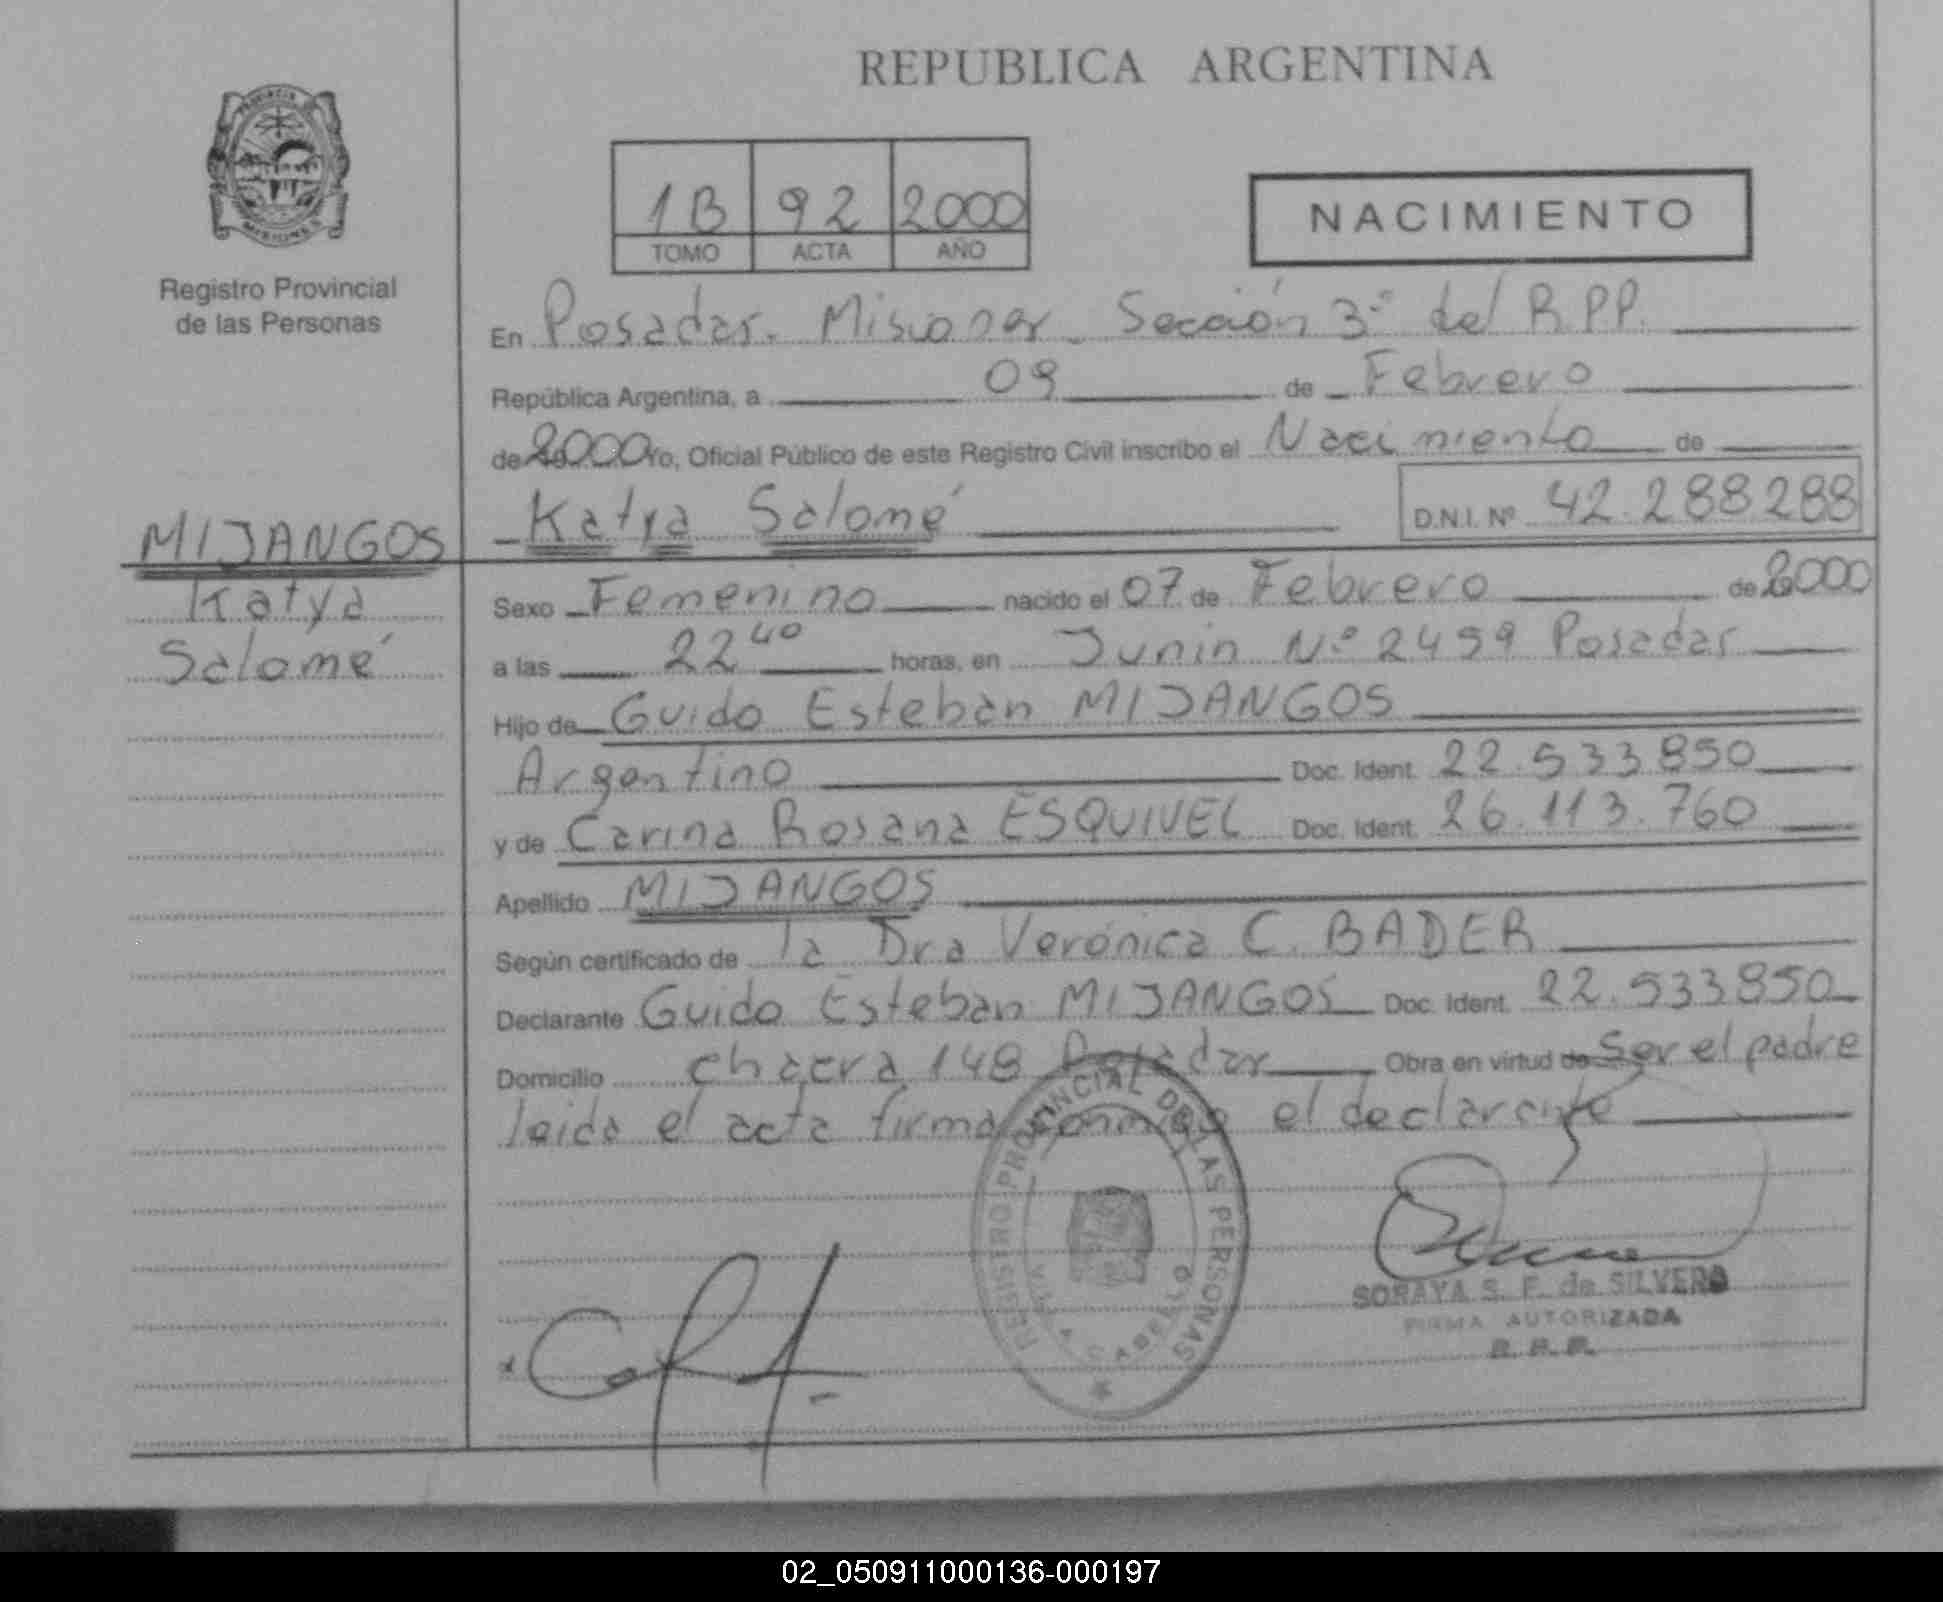 REPUBLICA ARGENTINA
PROVINCIA
MISIONES
Registro Provincial
de las Personas
1B 92 2000
TOMO ACTA AÑO
NACIMIENTO
En Posadas. Misiones Sección 3º del R.P.P.
República Argentina, a 09 de Febrero
de 2000 Yo, Oficial Público de este Registro Civil inscribo el Nacimiento de
Katya Salomé D.N.I. Nº 42.288288
MIJANGOS
Katya
Salomé
Sexo Femenino nacido el 07 de Febrero de 2000
a las 22 40 horas, en Junin Nº 2459 Posadas
Hijo de Guido Esteban MIJANGOS
Argentino Doc. Ident. 22.533.850
y de Carina Rosana ESQUIVEL Doc. Ident. 26.113.760
Apellido MIJANGOS
Según certificado de la Dra Verónica C. BADER
Declarante Guido Esteban MIJANGOS Doc. Ident. 22.533850
Domicilio chacra 148 Posadas Obra en virtud de Ser el padre
leida el acta firma conmigo el declarante
REGISTRO PROVINCIAL DE LAS PERSONAS
VILLA CABELLO
SORAYA S. F. de SILVERO
FIRMA AUTORIZADA
R. P. P.
02_050911000136-000197